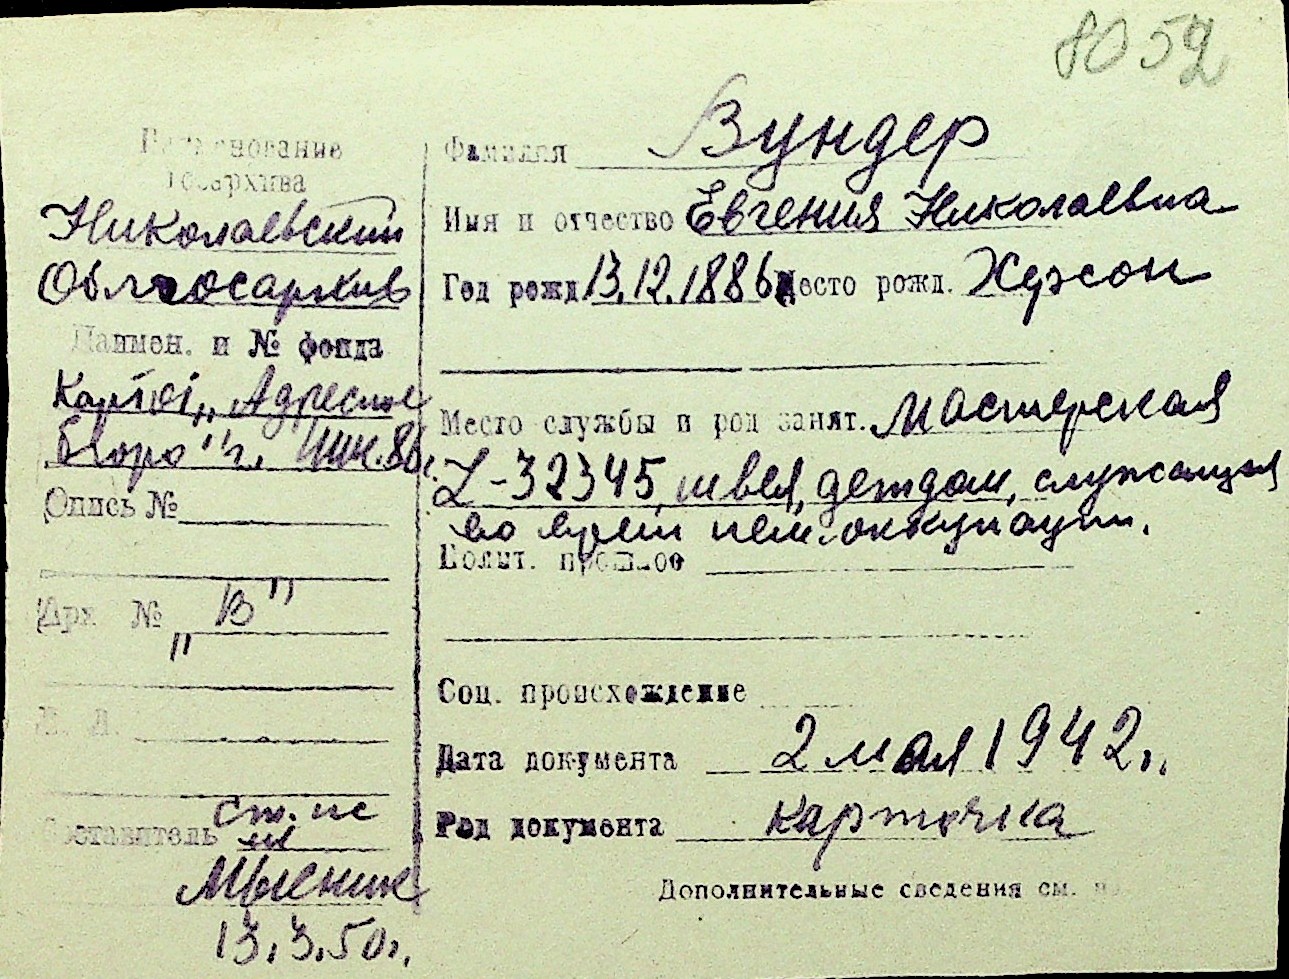 8052
Наименование
Госархива
Николаевский
Облгосархив
Наимен. и № фонда
"Адресное
бюро" г. Ник.
Опись №
Арх №
"В"
Составитель
13.3.50г.
Фамилия Вундер
Имя и отчество Евгения Николаевна
Год рожд 13.12.1886 Место рожд. Херсон
Место службы и род занят. Мастерская
Z-32345, швея, детдом, служащая
во время нем. оккупации.
Полит. прошлое
Соц. происхождение
Дата документа 2 мая 1942г.
Род документа карточка
Дополнительные сведения см. н